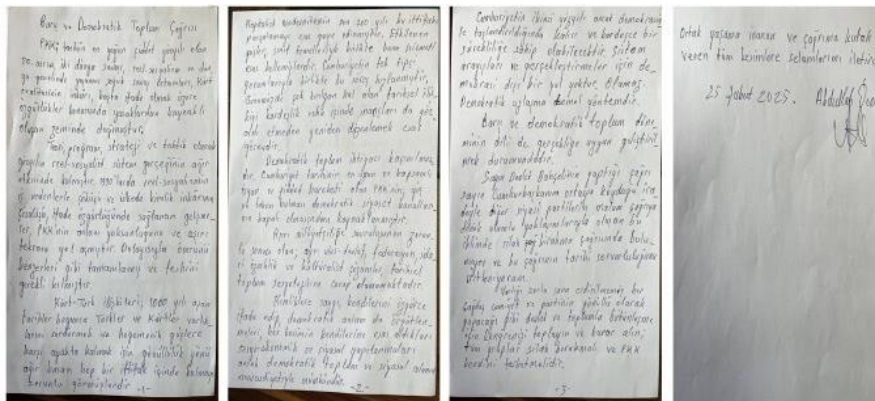 Barış ve Demokratik Toplum Çağrısı
PKK; tarihin en yoğun şiddet yüzyılı olan
20. asrın, iki dünya savaşı, reel-sosyalizm ve dün-
ya genelinde yaşanan soğuk savaş ortamları, Kürt
realitesinin inkârı, başta ifade olmak üzere
özgürlükler konusunda yasaklardan kaynaklı
oluşan zeminde doğmuştur.
Teori, program, strateji ve taktik olarak
yüzyılın reel-sosyalist sistem gerçeğinin ağır
etkisinde kalmıştır. 1990'larda reel-sosyalizmin
iç nedenlerle çöküşü ve ülkede kimlik inkarının
çözülüşü, ifade özgürlüğünde sağlanan gelişme-
ler, PKK'nin anlam yoksunluğuna ve aşırı
tekrara yol açmıştır. Dolayısıyla ömrünü
benzerleri gibi tamamlamış ve feshini
gerekli kılmıştır.
Kürt-Türk ilişkileri; 1000 yılı aşan
tarihler boyunca Türkler ve Kürtler varlık-
larını sürdürmek ve hegemonik güçlere
karşı ayakta kalmak için gönüllülük yönü
ağır basan hep bir ittifak içinde kalmayı
zorunlu görmüşlerdir.
-1-
Kapitalist modernitenin son 200 yılı bu ittifakı
parçalamayı esas gaye edinmiştir. Etkilenen
güçler, sınıf temelleriyle birlikte buna hizmeti
esas bellemişlerdir. Cumhuriyetin tek tipçi
yorumlarıyla birlikte bu süreç hızlanmıştır.
Günümüzde çok kırılgan hal alan tarihsel iliş-
kiyi kardeşlik ruhu içinde inançları da göz
ardı etmeden yeniden düzenlemek esas
görevdir.
Demokratik toplum ihtiyacı kaçınılmaz-
dır. Cumhuriyet tarihinin en uzun ve kapsamlı
isyan ve şiddet hareketi olan PKK'nin; güç
ve taban bulması demokratik siyaset kanalları-
nın kapalı olmasından kaynaklanmıştır.
Aşırı milliyetçilik savruluşunun zorun-
lu sonucu olan; ayrı ulus-devlet, federasyon, idari
özerklik ve kültüralist çözümler, tarihsel
toplum sosyolojisine cevap olamamaktadır.
Kimliklere saygı, kendilerini özgürce
ifade edip, demokratik anlamda örgütlen-
meleri, her kesimin kendilerine esas aldıkları
sosyo-ekonomik ve siyasal yapılanmaları
ancak demokratik toplum ve siyasal alanın
mevcudiyetiyle mümkündür.
-2-
Cumhuriyetin ikinci yüzyılı ancak demokrasiy-
le taçlandırıldığında kalıcı ve kardeşçe bir
sürekliliğe sahip olabilecektir. Sistem
arayışları ve gerçekleştirmeler için de-
mokrasi dışı bir yol yoktur. Olamaz.
Demokratik uzlaşma temel yöntemdir.
Barış ve demokratik toplum döne-
minin dili de gerçekliğe uygun geliştiril-
mek durumundadır.
Sayın Devlet Bahçelinin yaptığı çağrı
sayın Cumhurbaşkanının ortaya koyduğu ira-
deyle diğer siyasi partilerin malum çağrıya
dönük olumlu yaklaşımlarıyla oluşan bu
iklimde silah bırakma çağrısında bulu-
nuyor ve bu çağrının tarihi sorumluluğunu
üstleniyorum.
Varlığı zorla sona erdirilmemiş her
çağdaş cemiyet ve partinin gönüllü olarak
yapacağı gibi devlet ve toplumla bütünleşme
için kongrenizi toplayın ve karar alın;
tüm gruplar silah bırakmalı ve PKK
kendini feshetmelidir.
-3-
Ortak yaşama inanan ve çağrıma kulak
veren tüm kesimlere selamlarımı iletiyorum
25 Şubat 2025. Abdullah